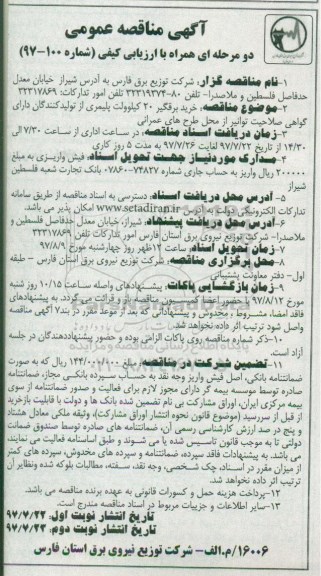 آگهی مناقصه عمومی
دو مرحله ای همراه با ارزیابی کیفی (شماره ۱۰۰-۹۷)
۱-نام مناقصه گزار، شرکت توزیع برق فارس به آدرس شیراز خیابان معدل
حدفاصل فلسطین و ملاصدرا- تلفن ۸۰-۳۲۳۱۹۳۷۴ تلفن امور تدارکات: ۳۲۳۱۷۸۶۹
۲-موضوع مناقصه، خرید برقگیر ۲۰ کیلوولت پلیمری از تولیدکنندگان دارای
گواهی صلاحیت توانیر از محل طرح های عمرانی
۳-زمان دریافت اسناد مناقصه، در ساعات اداری از ساعت ۷/۳۰ الی
۱۴/۳۰ از تاریخ ۹۷/۷/۲۲ لغایت ۹۷/۷/۲۶ به مدت ۵ روز کاری
۴-مدارک موردنیاز جهت تحویل اسناد، فیش واریزی به مبلغ
۲۰۰۰۰۰ ریال واریز به حساب جاری شماره ۷۴۸۲۷-۰۷۸۶۰ بانک تجارت شعبه فلسطین
شیراز
۵-آدرس محل دریافت اسناد، دسترسی به اسناد مناقصه از طریق سامانه
تدارکات الکترونیکی دولت به آدرس www.setadiran.ir امکان پذیر می باشد.
۶-آدرس محل دریافت پیشنهاد، شیراز، خیابان معدل حدفاصل فلسطین و
ملاصدرا- شرکت توزیع نیروی برق استان فارس امور تدارکات تلفن ۳۲۳۱۷۸۶۹
۷-زمان تحویل اسناد، ساعت ۱۲ظهر روز چهارشنبه مورخ ۹۷/۸/۹
۸-محل برگزاری مناقصه، شرکت توزیع نیروی برق استان فارس - طبقه
اول- دفتر معاونت پشتیبانی
۹-زمان بازگشایی پاکات، پیشنهادهای واصله ساعت ۱۰/۱۵ روز شنبه
مورخ ۹۷/۸/۱۲ با حضور اعضا کمیسیون مناقصه باز و قرائت می گردد. به پیشنهادهای
فاقد امضا، مشروط، مخدوش و پیشنهاداتی که بعد از موعد مقرر در بند۷ آگهی مناقصه
واصل شود ترتیب اثر داده نخواهد شد.
۱۰-ذکر شماره مناقصه روی پاکات الزامی بوده و حضور پیشنهاددهندگان در جلسه
آزاد است.
۱۱-تضمین شرکت در مناقصه، مبلغ ۱۴۴/۰۰۰/۰۰۰ ریال که به صورت
ضمانتنامه بانکی، اصل فیش واریز وجه نقد به حساب سپرده بانکی مجاز، ضمانتنامه
صادره توسط موسسه بیمه گر دارای مجوز لازم برای فعالیت و صدور ضمانتنامه از سوی
بیمه مرکزی ایران، اوراق مشارکت بی نام تضمین شده بانک ها و دولت با قابلیت بازخرید
از قبل از سررسید (موضوع قانون نحوه انتشار اوراق مشارکت)، وثیقه ملکی معادل هشتاد
و پنج در صد ارزش کارشناسی رسمی آن، ضمانتنامه های صادره توسط صندوق ضمانت
دولتی تا به موجب قانون تاسیس شده یا می شوند و طبق اساسنامه فعالیت می نمایند،
می باشد. به پیشنهادات فاقد سپرده، ضمانتنامه و سپرده های مخدوش، سپرده های کمتر
از میزان مقرر در اسناد، چک شخصی، وجه نقد، سفته، مطالبات بلوکه شده ونظایر آن
ترتیب اثر داده نخواهد شد.
۱۲-پرداخت هزینه حمل و کسورات قانونی به عهده برنده مناقصه می باشد.
۱۳-سایر اطلاعات و جزییات مربوط در اسناد مناقصه مندرج است.
تاریخ انتشار نوبت اول، ۹۷/۷/۲۲
تاریخ انتشار نوبت دوم، ۹۷/۷/۲۳
۱۶۰۰۶/م.الف- شرکت توزیع نیروی برق استان فارس